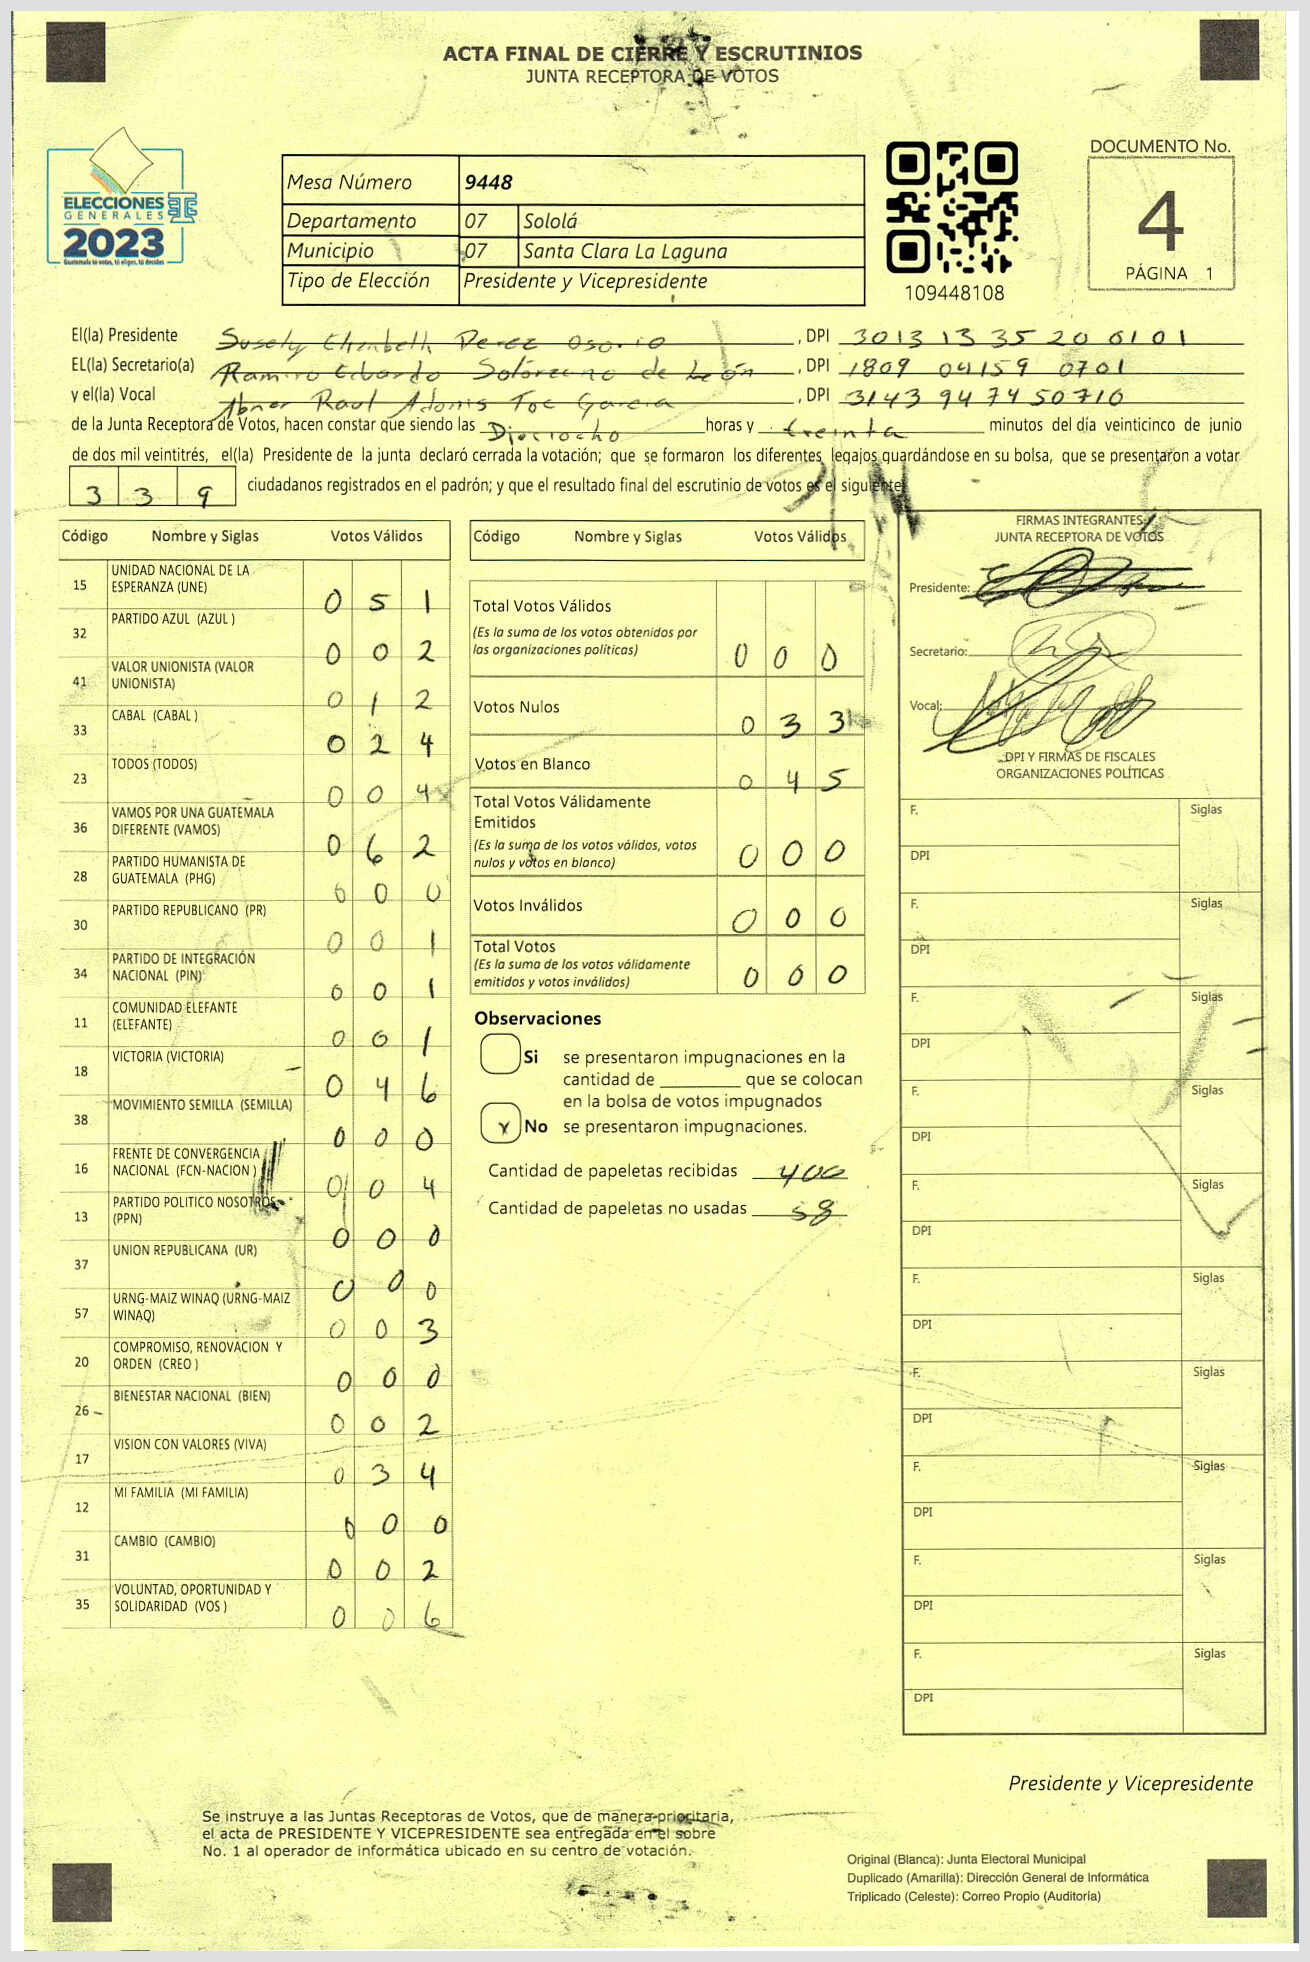 ACTA FINAL DE CIERRE Y ESCRUTINIOS
JUNTA RECEPTORA DE VOTOS
ELECCIONES
GENERALES
2023
Guatemala tú votas, tú eliges, tú decides
Mesa Número 9448
Departamento 07 Sololá
Municipio 07 Santa Clara La Laguna
Tipo de Elección Presidente y Vicepresidente
109448108
DOCUMENTO No.
4
PÁGINA 1
El(la) Presidente Susely Elizabeth Perez Osorio, DPI 3013 13 35 20 0101
EL(la) Secretario(a) Ramiro Eduardo Solórzano de León, DPI 1809 04159 0701
y el(la) Vocal Abner Raul Adonis Toc Garcia, DPI 3143 947450710
de la Junta Receptora de Votos, hacen constar que siendo las Dieciocho horas y treinta minutos del día veinticinco de junio
de dos mil veintitrés, el(la) Presidente de la junta declaró cerrada la votación; que se formaron los diferentes legajos guardándose en su bolsa, que se presentaron a votar
3 3 9 ciudadanos registrados en el padrón; y que el resultado final del escrutinio de votos es el siguiente
Código Nombre y Siglas Votos Válidos
15 UNIDAD NACIONAL DE LA
ESPERANZA (UNE) 0 5 1
32 PARTIDO AZUL (AZUL ) 0 0 2
41 VALOR UNIONISTA (VALOR
UNIONISTA) 0 1 2
33 CABAL (CABAL ) 0 2 4
23 TODOS (TODOS) 0 0 4
36 VAMOS POR UNA GUATEMALA
DIFERENTE (VAMOS) 0 6 2
28 PARTIDO HUMANISTA DE
GUATEMALA (PHG) 0 0 0
30 PARTIDO REPUBLICANO (PR) 0 0 1
34 PARTIDO DE INTEGRACIÓN
NACIONAL (PIN) 0 0 1
11 COMUNIDAD ELEFANTE
(ELEFANTE) 0 0 1
18 VICTORIA (VICTORIA) 0 4 6
38 MOVIMIENTO SEMILLA (SEMILLA) 0 0 0
16 FRENTE DE CONVERGENCIA
NACIONAL (FCN-NACION ) 0 0 4
13 PARTIDO POLITICO NOSOTROS
(PPN) 0 0 0
37 UNION REPUBLICANA (UR) 0 0 0
57 URNG-MAIZ WINAQ (URNG-MAIZ
WINAQ) 0 0 3
20 COMPROMISO, RENOVACION Y
ORDEN (CREO ) 0 0 0
26 BIENESTAR NACIONAL (BIEN) 0 0 2
17 VISION CON VALORES (VIVA) 0 3 4
12 MI FAMILIA (MI FAMILIA) 0 0 0
31 CAMBIO (CAMBIO) 0 0 2
35 VOLUNTAD, OPORTUNIDAD Y
SOLIDARIDAD (VOS ) 0 0 6
Código Nombre y Siglas Votos Válidos
Total Votos Válidos
(Es la suma de los votos obtenidos por
las organizaciones políticas) 0 0 0
Votos Nulos 0 3 3
Votos en Blanco 0 4 5
Total Votos Válidamente
Emitidos
(Es la suma de los votos válidos, votos
nulos y votos en blanco) 0 0 0
Votos Inválidos 0 0 0
Total Votos
(Es la suma de los votos válidamente
emitidos y votos inválidos) 0 0 0
Observaciones
Si se presentaron impugnaciones en la
cantidad de ________ que se colocan
en la bolsa de votos impugnados
x No se presentaron impugnaciones.
Cantidad de papeletas recibidas 400
Cantidad de papeletas no usadas 58
FIRMAS INTEGRANTES
JUNTA RECEPTORA DE VOTOS
Presidente:
Secretario:
Vocal:
DPI Y FIRMAS DE FISCALES
ORGANIZACIONES POLÍTICAS
F. Siglas
DPI
F. Siglas
DPI
F. Siglas
DPI
F. Siglas
DPI
F. Siglas
DPI
F. Siglas
DPI
F. Siglas
DPI
F. Siglas
DPI
F. Siglas
DPI
F. Siglas
DPI
Presidente y Vicepresidente
Se instruye a las Juntas Receptoras de Votos, que de manera prioritaria,
el acta de PRESIDENTE Y VICEPRESIDENTE sea entregada en el sobre
No. 1 al operador de informática ubicado en su centro de votación.
Original (Blanca): Junta Electoral Municipal
Duplicado (Amarilla): Dirección General de Informática
Triplicado (Celeste): Correo Propio (Auditoría)